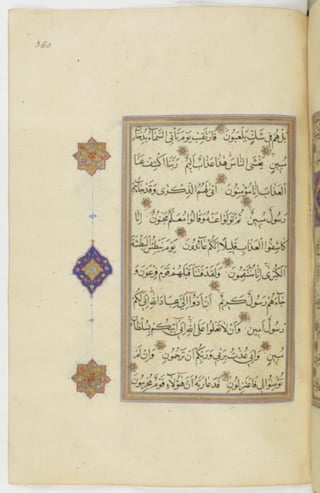 360
بَلْ هُمْ فِي شَكٍّ يَلْعَبُونَ فَارْتَقِبْ يَوْمَ تَأْتِي السَّمَاءُ بِدُخَانٍ
مُبِينٍ يَغْشَى النَّاسَ هَذَا عَذَابٌ أَلِيمٌ رَبَّنَا اكْشِفْ عَنَّا
الْعَذَابَ إِنَّا مُؤْمِنُونَ أَنَّى لَهُمُ الذِّكْرَى وَقَدْ جَاءَهُمْ
رَسُولٌ مُبِينٌ ثُمَّ تَوَلَّوْا عَنْهُ وَقَالُوا مُعَلَّمٌ مَجْنُونٌ إِنَّا
كَاشِفُوا الْعَذَابِ قَلِيلًا إِنَّكُمْ عَائِدُونَ يَوْمَ نَبْطِشُ الْبَطْشَةَ
الْكُبْرَى إِنَّا مُنْتَقِمُونَ وَلَقَدْ فَتَنَّا قَبْلَهُمْ قَوْمَ فِرْعَوْنَ وَ
جَاءَهُمْ رَسُولٌ كَرِيمٌ أَنْ أَدُّوا إِلَيَّ عِبَادَ اللَّهِ إِنِّي لَكُمْ
رَسُولٌ أَمِينٌ وَأَنْ لَا تَعْلُوا عَلَى اللَّهِ إِنِّي آتِيكُمْ بِسُلْطَانٍ
مُبِينٍ وَإِنِّي عُذْتُ بِرَبِّي وَرَبِّكُمْ أَنْ تَرْجُمُونِ وَإِنْ لَمْ
تُؤْمِنُوا لِي فَاعْتَزِلُونِ فَدَعَا رَبَّهُ أَنَّ هَؤُلَاءِ قَوْمٌ مُجْرِمُونَ